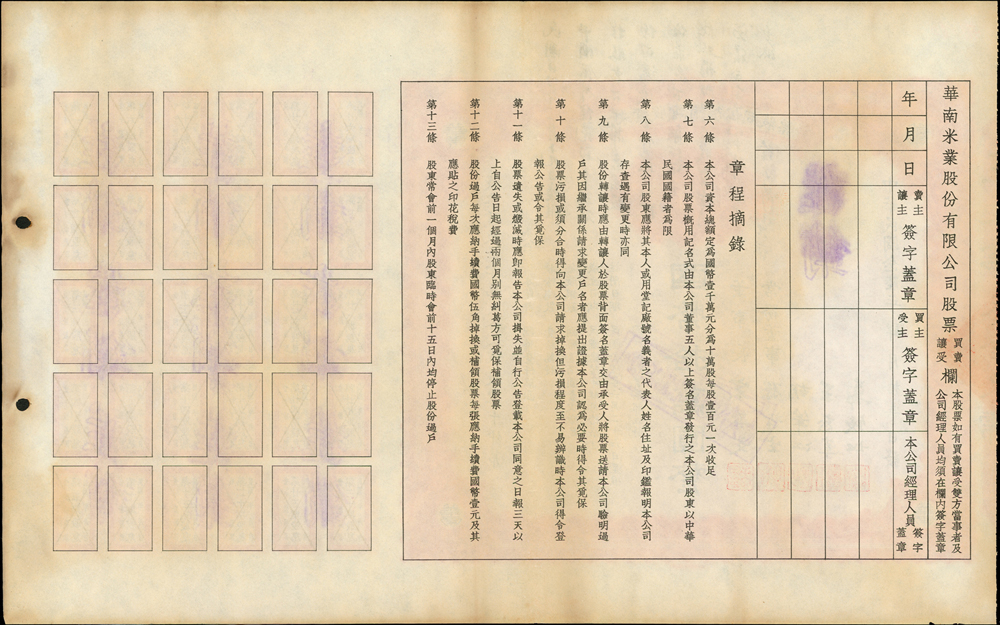 華南米業股份有限公司股票 買賣讓受欄
本股票如有買賣讓受雙方當事者及
公司經理人員均須在欄內簽字蓋章
年 月 日 賣主讓主 簽字蓋章 買主受主 簽字蓋章 本公司經理人員 簽字蓋章
章程摘錄
第六條 本公司資本總額定為國幣壹千萬元分為十萬股每股壹百元一次收足
第七條 本公司股票概用記名式由本公司董事五人以上簽名蓋章發行之本公司股東以中華
民國國籍者為限
第八條 本公司股東應將其本人或用堂記廠號名義者之代表人姓名住址及印鑑報明本公司
存查遇有變更時亦同
第九條 股份轉讓時應由轉讓人於股票背面簽名蓋章交由承受人將股票送請本公司驗明過
戶其因繼承關係請求變更戶名者應提出證據本公司認為必要時得令其覓保
第十條 股票污損或須分合時得向本公司請求掉換但污損程度至不易辨識時本公司得令登
報公告或令其覓保
第十一條 股票遺失或燬滅時應即報告本公司掛失並自行公告登載本公司同意之日報三天以
上自公告日起經過兩個月別無糾葛方可覓保補領股票
第十二條 股份過戶每次應納手續費國幣伍角掉換或補領股票每張應納手續費國幣壹元及其
應貼之印花稅費
第十三條 股東常會前一個月內股東臨時會前十五日內均停止股份過戶